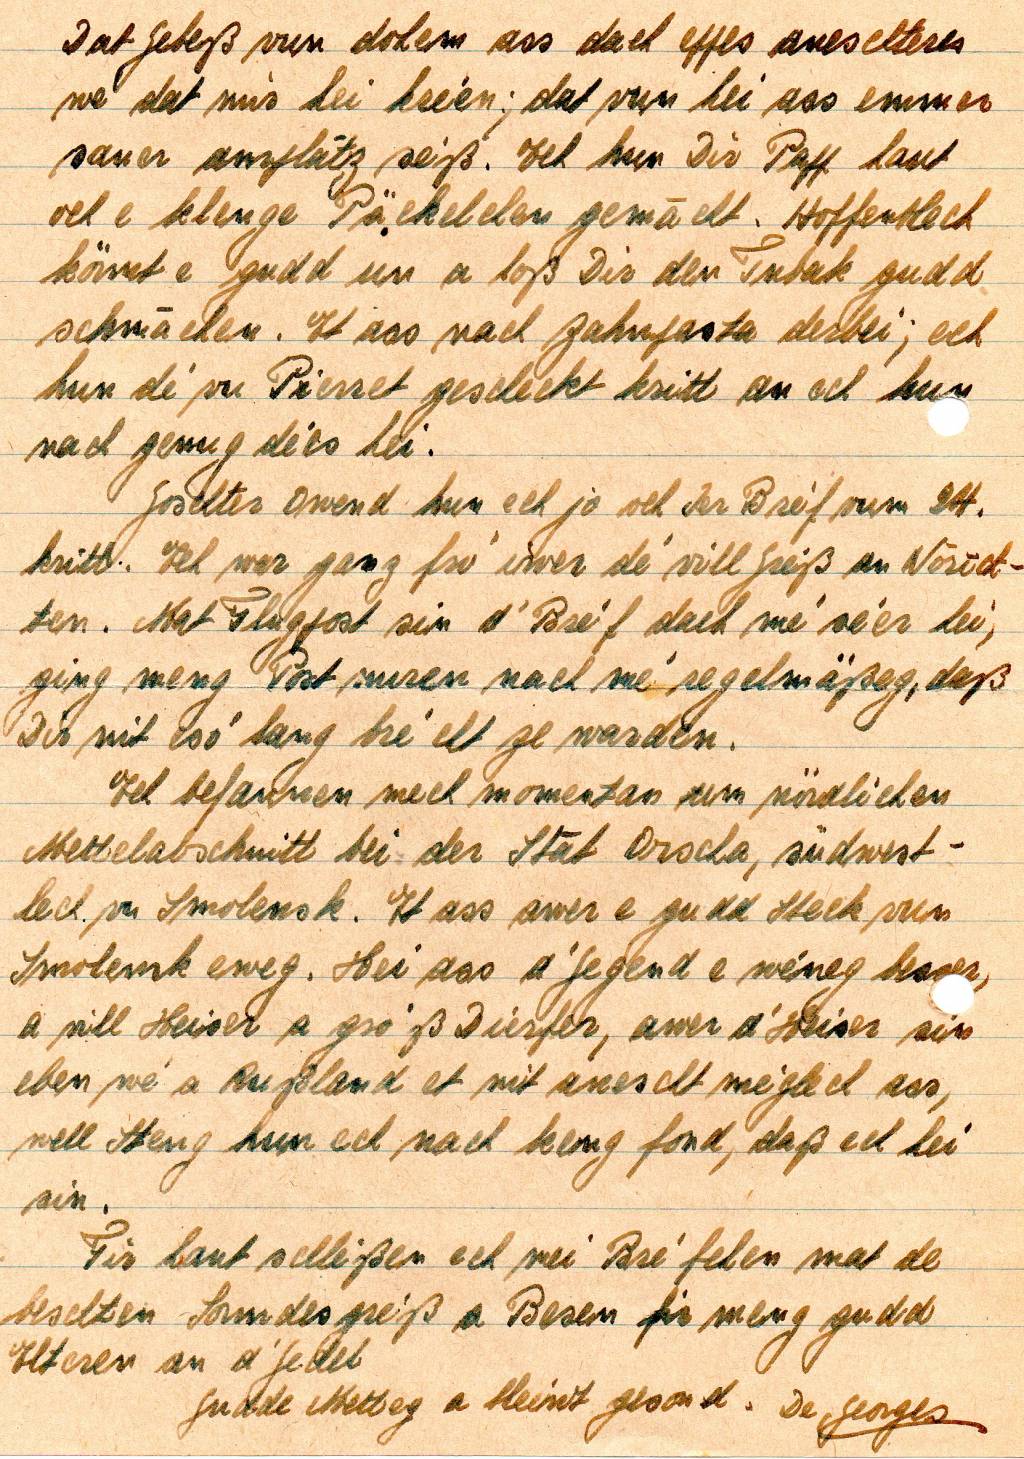 Dat Gebeß vun dohem ass dach effes aneschteres
wé dat mir hei kréien; dat vun hei ass emmer
sauer amplätz séiß. Ech hun Dir Papp haut
och e klenge Päckelchen gemācht. Hoffentlech
könnt e gudd un a loß Dir den Tubak gudd
schmāchen. Et ass nach Zahnpasta derbei; ech
hun dé vu Pierret geschéckt kritt an ech hun
nach genug dées hei.
Göschter Owend hun ech jo och Ier Bréif vum 24.
kritt. Ech war ganz fró iwer dé vill Gréiß an Nōrich-
ten. Mat Flugpost sin d'Bréf dach mé séier hei,
ging meng Post nuren nach mé regelmäßeg, daß
Dir nit esó lang bréicht ze warden.
Ech befannen mech momentan um nördlichen
Mettelabschnitt bei der Stāt Orscha, südwest-
lech vu Smolensk. Et ass awer e gudd Steck vun
Smolensk eweg. Hei ass d'Gegend e wéneg besser,
a vill Heiser a gró'ß Dierfer, awer d'Heiser sin
eben wé a Rußland et nit anescht méglech ass,
well Steng hun ech nach keng fond, daß ech hei
sin.
Fir haut schléißen ech mei Bréfchen mat de
beschten Sonndesgréiß a Besen fir meng gudd
Elteren an d'Gedel
Gudde Metteg a bleiwt gesond. De Georges